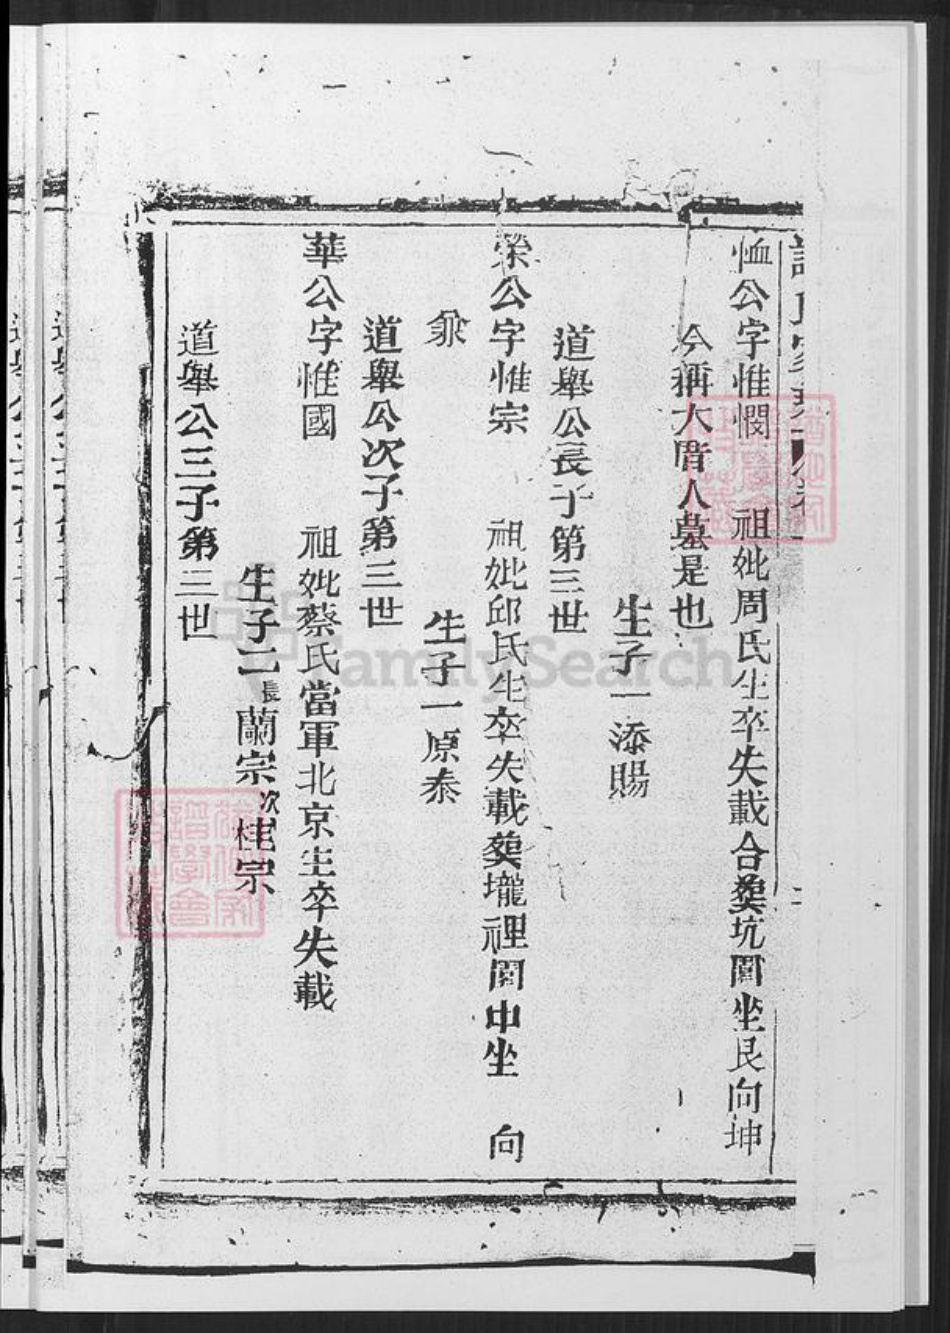 恤公字惟憫 祖妣周氏生卒失載合𦵏坑園坐艮向坤
今稱大厝人墓是也
生子一添賜
道舉公長子第三世
榮公字惟宗 祖妣邱氏生卒失載𦵏壠裡園中坐 向
生子一原泰
道舉公次子第三世
華公字惟國 祖妣蔡氏當軍北京生卒失載
生子二長蘭宗次桂宗
道舉公三子第三世
FamilySearch